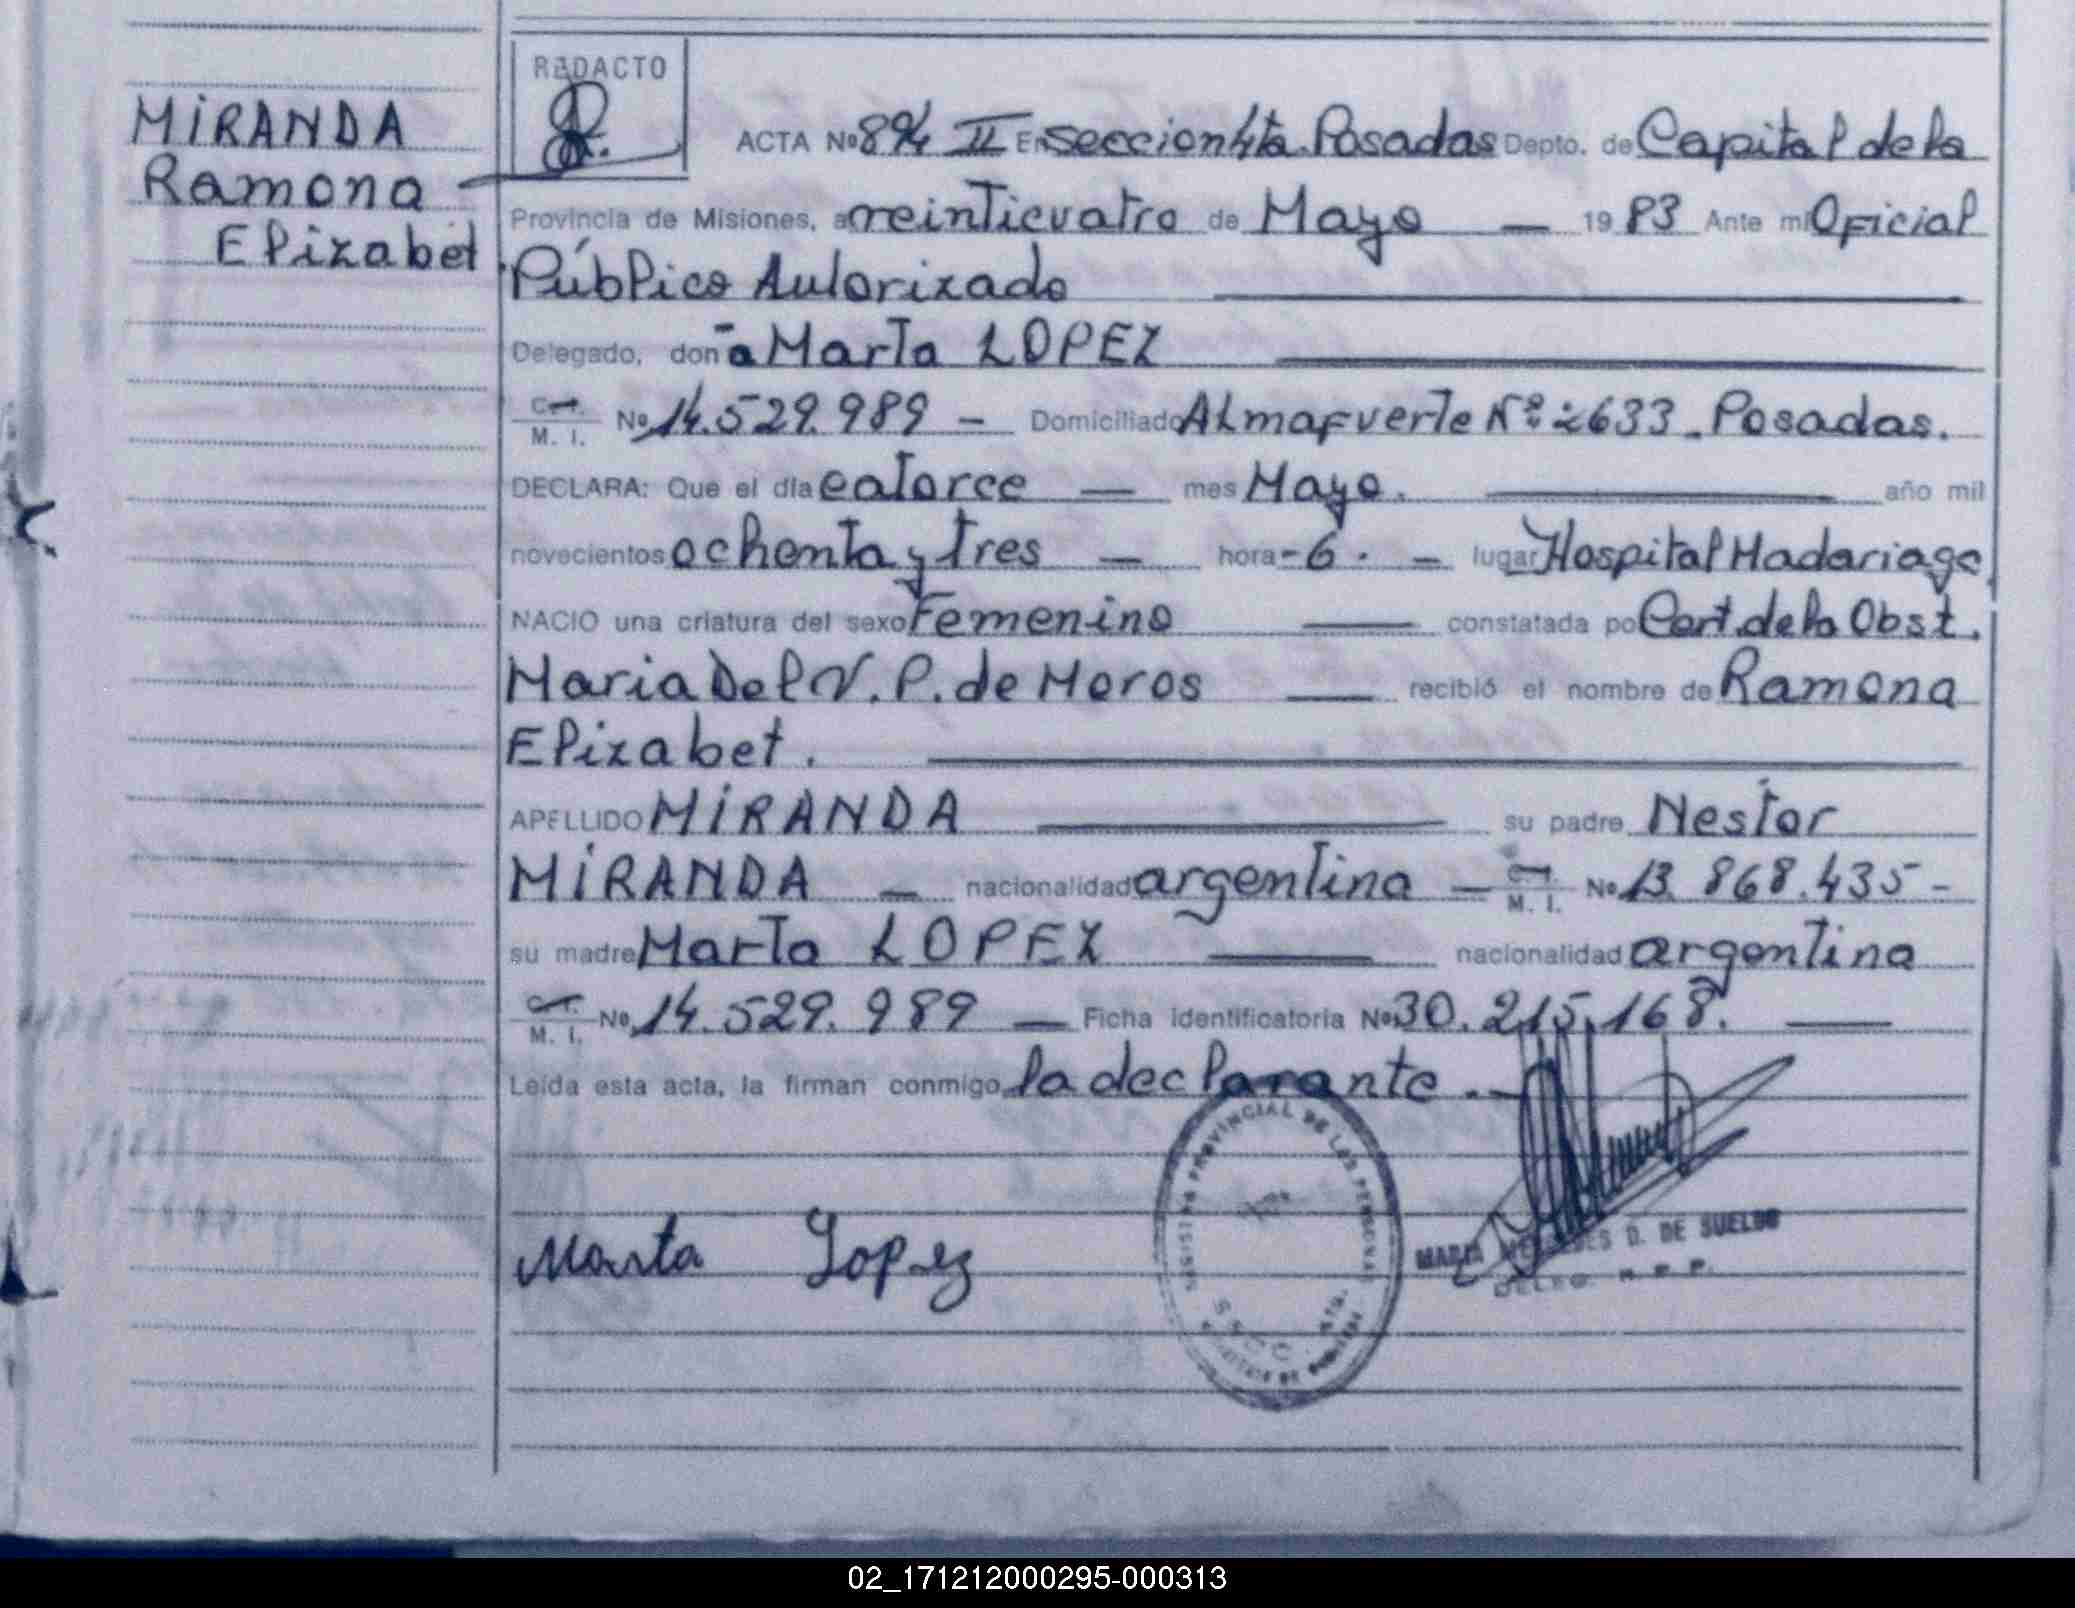 MIRANDA
Ramona
Elizabet
REDACTO
ACTA Nº 894 II En seccion 4ta. Posadas Depto. de Capital de la
Provincia de Misiones, a veinticuatro de Mayo — 1983 Ante mi Oficial
Público Autorizado
Delegado, doña Marta LOPEZ
C.I. M. I. Nº 14.529.989 - Domiciliado Almafuerte Nº 2633 - Posadas.
DECLARA: Que el día catorce — mes Mayo. — año mil
novecientos ochenta y tres — hora - 6 . - lugar Hospital Madariaga
NACIO una criatura del sexo Femenino — constatada por Cert. de la Obst.
Maria Del V. P. de Moros — recibió el nombre de Ramona
Elizabet.
APELLIDO MIRANDA — su padre Nestor
MIRANDA — nacionalidad argentina — C.I. M. I. Nº 13.868.435 -
su madre Marta LOPEZ — nacionalidad argentina
C.I. M. I. Nº 14.529.989 — Ficha identificatoria Nº 30.215.168. —
Leída esta acta, la firman conmigo la declarante . -
PROVINCIAL DE LAS PERSONAS
Marta Lopez
MARIA MERCEDES D. DE SUELDO
DELEG. R. P. P.
02_171212000295-000313